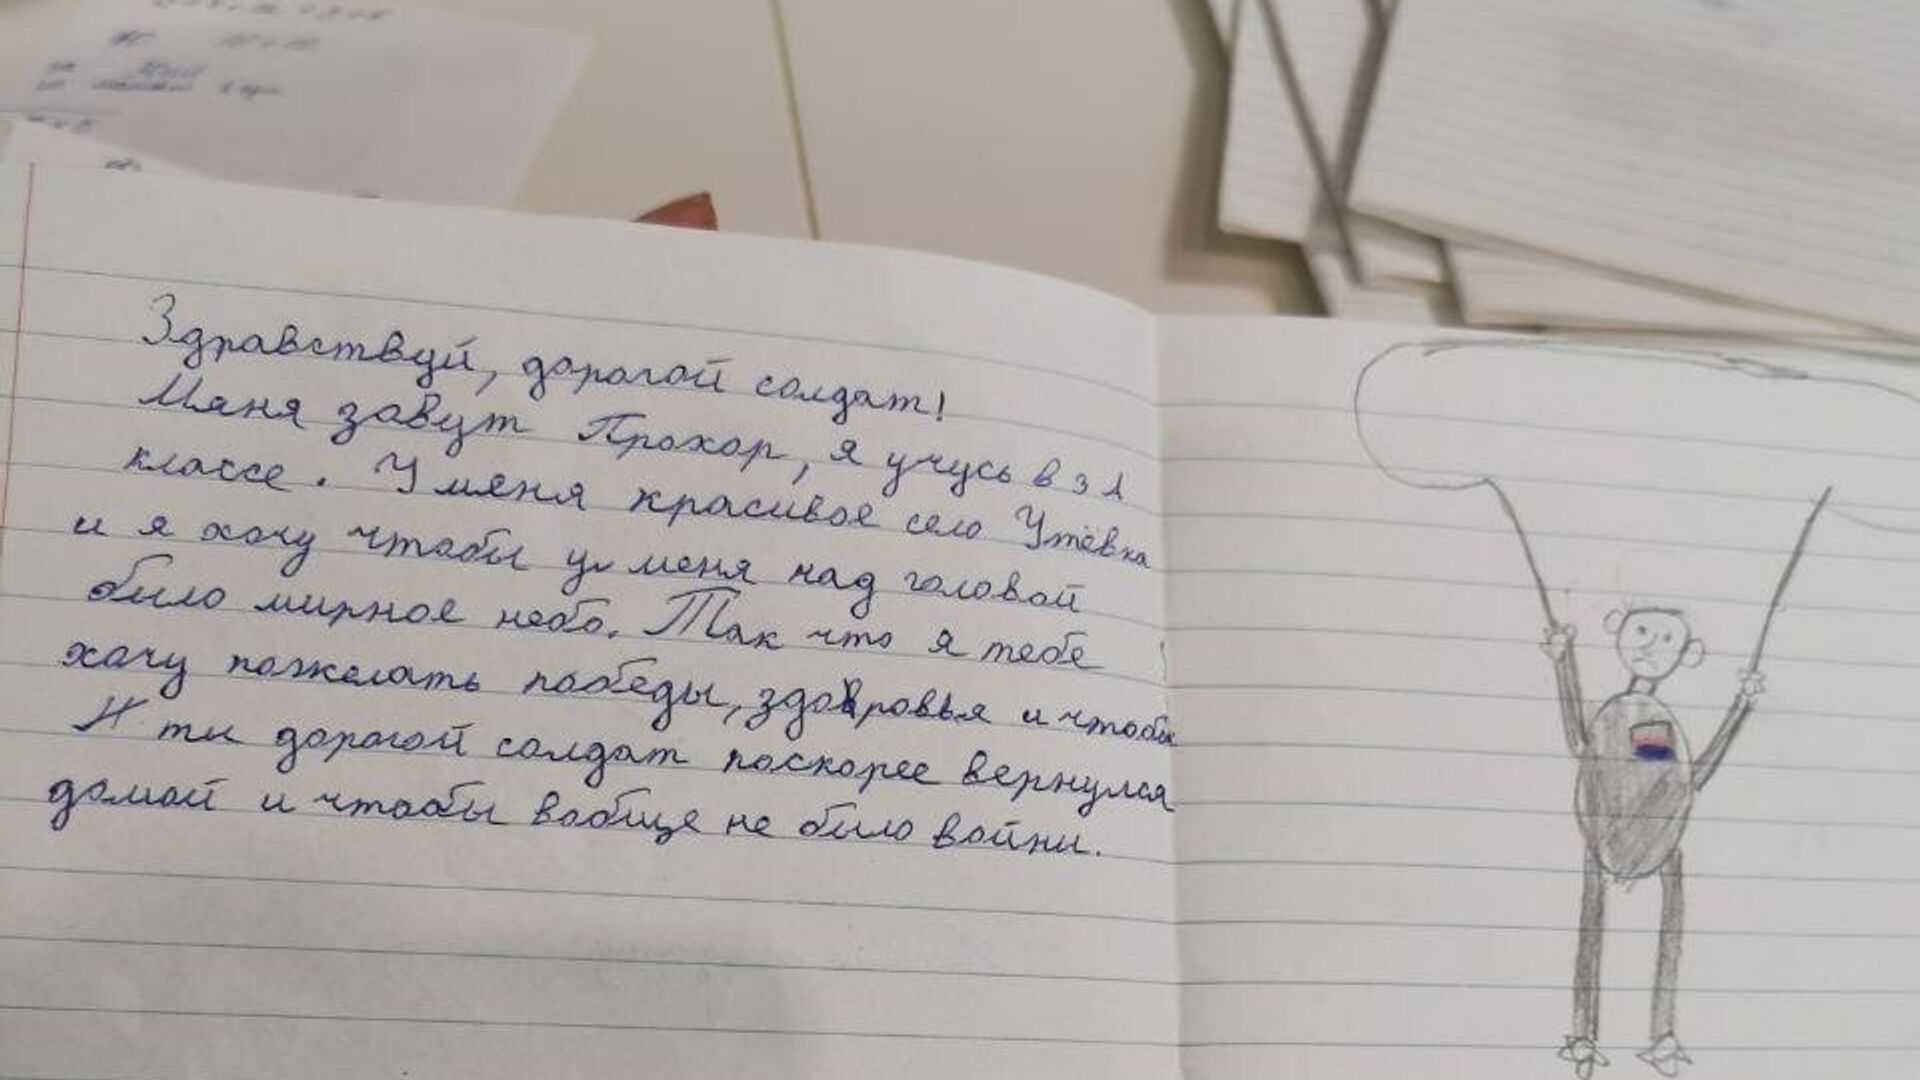 Здравствуй, дорогой солдат!
Мяня завут Прохор, я учусь в 3 А
классе. У мяня красивое село Утёвка
и я хочу чтобы у меня над головой
было мирное небо. Так что я тебе
хочу пожелать победы, здоровья и чтобы
И ты дорогой солдат поскорее вернулся
домой и чтобы вообще не было войны.